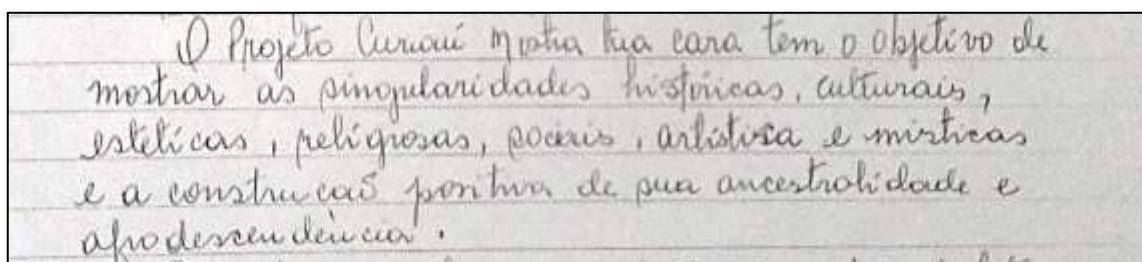 O Projeto Curiaú mostra tua cara tem o objetivo de
mostrar as singularidades históricas, culturais,
estéticas, religiosas, sociais, artística e místicas
e a construção positiva de sua ancestralidade e
afrodescendência.